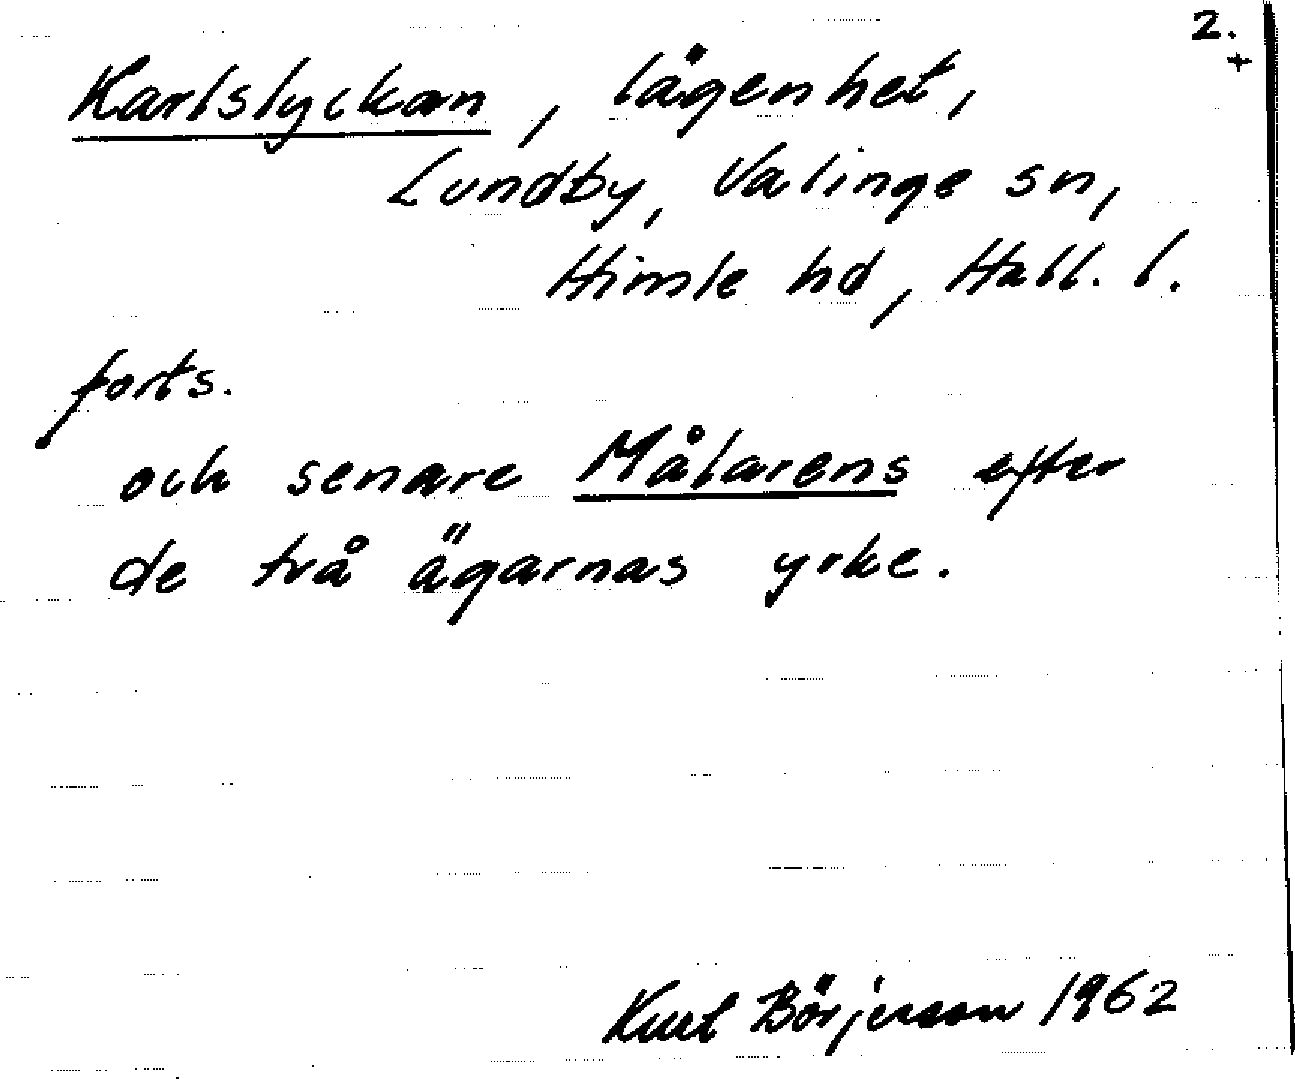 2.
+
Karlslyckan, lägenhet,
Lundby, Valinge sn,
Himle hd, Hall. l.
forts.
och senare Målarens efter
de två ägarnas yrke.
Kurt Börjesson 1962